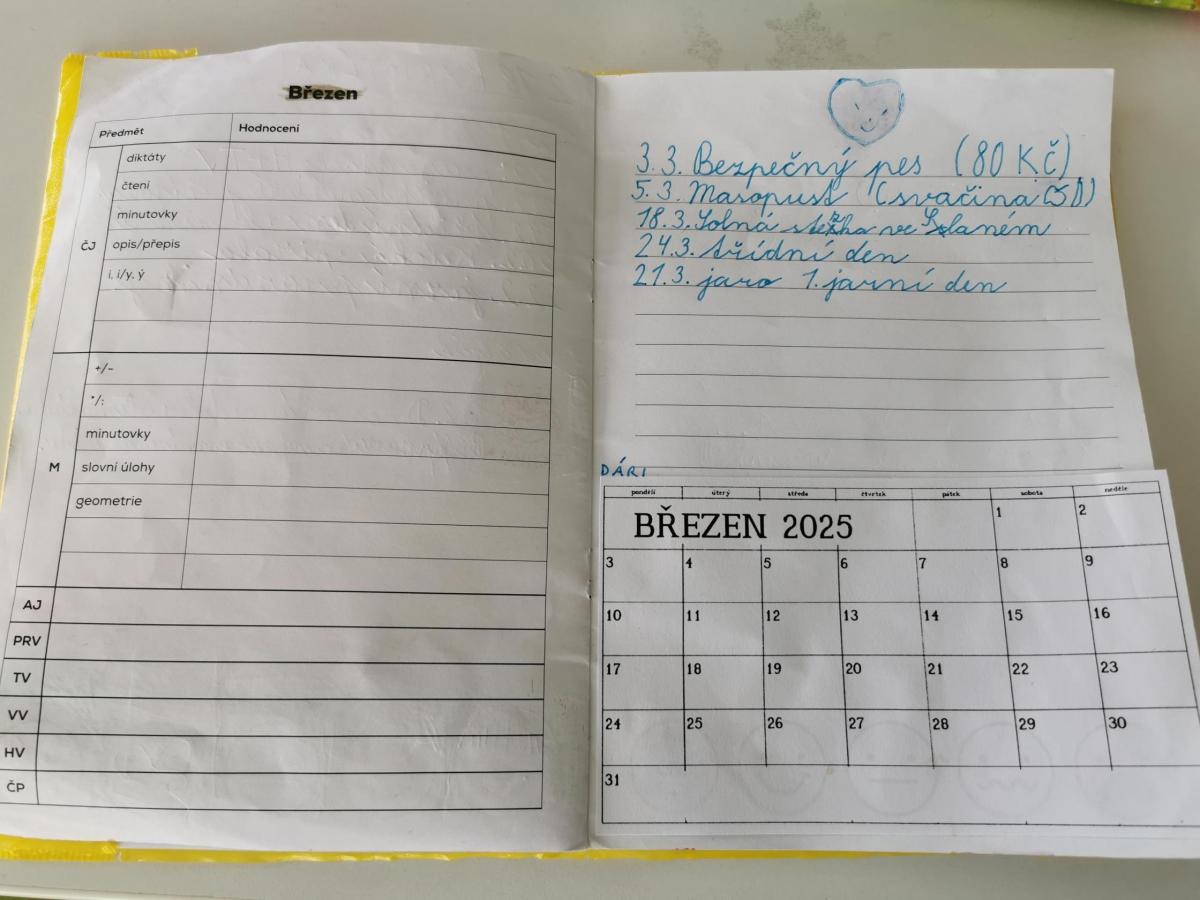 Březen
Předmět Hodnocení
ČJ
diktáty
čtení
minutovky
opis/přepis
i, í/y, ý
M
+/-
*/:
minutovky
slovní úlohy
geometrie
AJ
PRV
TV
VV
HV
ČP
3.3. Bezpečný pes (80 Kč)
5.3. Masopust (svačina ŠD)
18.3. Solná stezka ve Slaném
24.3. třídní den
21.3. jaro 1. jarní den
DÁRI
pondělí úterý středa čtvrtek pátek sobota neděle
BŘEZEN 2025 1 2
3 4 5 6 7 8 9
10 11 12 13 14 15 16
17 18 19 20 21 22 23
24 25 26 27 28 29 30
31